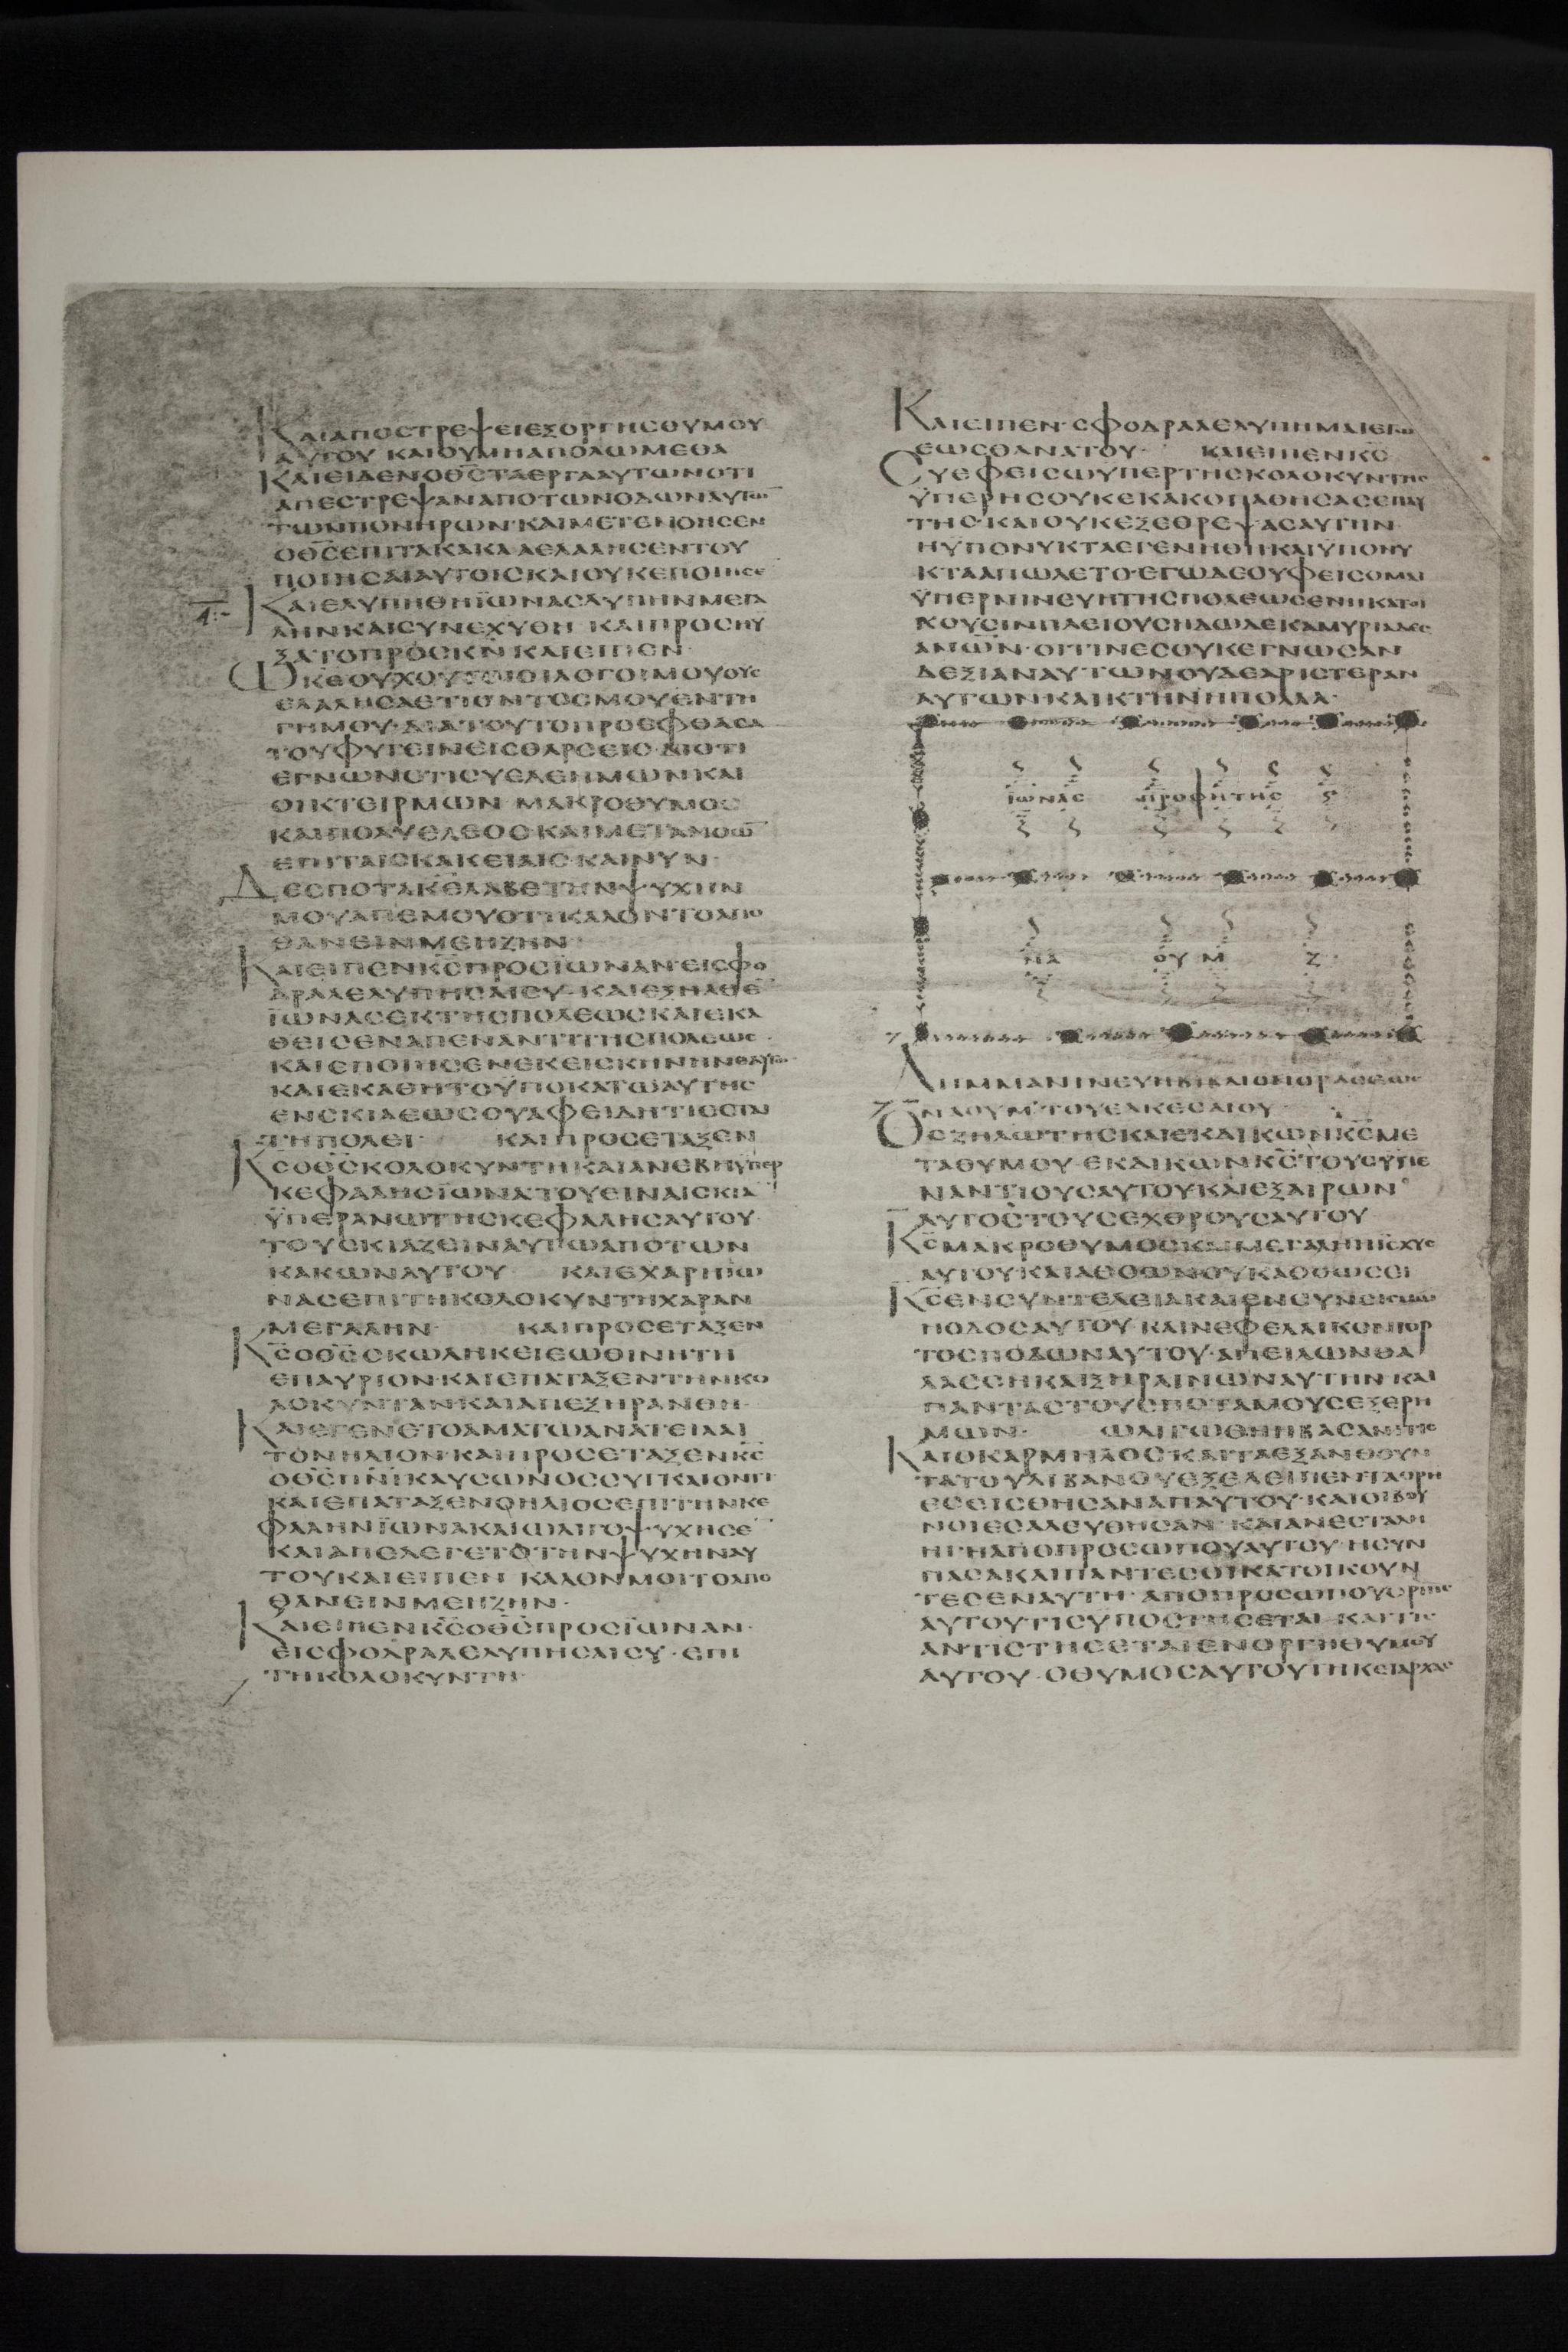 ΚΑΙΑΠΟCΤΡΕΨΕΙΕΞΟΡΓΗCΘΥΜΟΥ
ΑΥΤΟΥ ΚΑΙΟΥΜΗΑΠΟΛΩΜΕΘΑ
ΚΑΙΕΙΔΕΝΟΘ̅C̅ΤΑΕΡΓΑΑΥΤΩΝΟΤΙ
ΑΠΕCΤΡΕΨΑΝΑΠΟΤΩΝΟΔΩΝΑΥΤΩ̅
ΤΩΝΠΟΝΗΡΩΝ·ΚΑΙΜΕΤΕΝΟΗCΕΝ
ΟΘ̅C̅ΕΠΙΤΑΚΑΚΑ ΑΕΛΑΛΗCΕΝΤΟΥ
ΠΟΙΗCΑΙΑΥΤΟΙCΚΑΙΟΥΚΕΠΟΙΗCΕ
Δ
ΚΑΙΕΛΥΠΗΘΗΪΩΝΑCΛΥΠΗΝΜΕΓΑ
ΛΗΝΚΑΙCΥΝΕΧΥΘΗ ΚΑΙΠΡΟCΗΥ
ΞΑΤΟΠΡΟCΚ̅Ν̅ ΚΑΙΕΙΠΕΝ·
ΩΚ̅Ε̅ΟΥΧΟΥΤΟΙΟΙΛΟΓΟΙΜΟΥΟΥC
ΕΛΑΛΗCΑΕΤΙΟΝΤΟCΜΟΥΕΝΤΗ
ΓΗΜΟΥ·ΔΙΑΤΟΥΤΟΠΡΟΕΦΘΑCΑ
ΤΟΥΦΥΓΕΙΝΕΙCΘΑΡCΕΙC·ΔΙΟΤΙ
ΕΓΝΩΝΟΤΙCΥΕΛΕΗΜΩΝΚΑΙ
ΟΙΚΤΕΙΡΜΩΝ ΜΑΚΡΟΘΥΜΟC
ΚΑΙΠΟΛΥΕΛΕΟC·ΚΑΙΜΕΤΑΝΟΩ̅
ΕΠΙΤΑΙCΚΑΚΕΙΑΙC·ΚΑΙΝΥΝ·
ΔΕCΠΟΤΑΚ̅Ε̅ΛΑΒΕΤΗΝΨΥΧΗΝ
ΜΟΥΑΠΕΜΟΥΟΤΙΚΑΛΟΝΤΟΑΠΟ
ΘΑΝΕΙΝΜΕΗΖΗΝ
ΚΑΙΕΙΠΕΝΚ̅C̅ΠΡΟCΪΩΝΑΝ·ΕΙCΦΟ
ΔΡΑΛΕΛΥΠΗCΑΙCΥ·ΚΑΙΕΞΗΛΘΕ̅
ΪΩΝΑCΕΚΤΗCΠΟΛΕΩCΚΑΙΕΚΑ
ΘΕΙCΕΝΑΠΕΝΑΝΤΙΤΗCΠΟΛΕΩC·
ΚΑΙΕΠΟΙΗCΕΝΕΚΕΙCΚΗΝΗΝΕΑΥΤΩ
ΚΑΙΕΚΑΘΗΤΟΫΠΟΚΑΤΩΑΥΤΗC
ΕΝCΚΙΑΕΩCΟΥΑΦΕΙΔΗΤΙΕCΤΑΙ
ΤΗΠΟΛΕΙ· ΚΑΙΠΡΟCΕΤΑΞΕΝ
Κ̅C̅ΟΘ̅C̅ΚΟΛΟΚΥΝΤΗΚΑΙΑΝΕΒΗΫΠΕΡ
ΚΕΦΑΛΗCΪΩΝΑΤΟΥΕΙΝΑΙCΚΙΑ
ΫΠΕΡΑΝΩΤΗCΚΕΦΑΛΗCΑΥΤΟΥ
ΤΟΥCΚΙΑΖΕΙΝΑΥΤΩΑΠΟΤΩΝ
ΚΑΚΩΝΑΥΤΟΥ ΚΑΙΕΧΑΡΗΪΩ
ΝΑCΕΠΙΤΗΚΟΛΟΚΥΝΤΗΧΑΡΑΝ
ΜΕΓΑΛΗΝ· ΚΑΙΠΡΟCΕΤΑΞΕΝ
Κ̅C̅ΟΘ̅C̅CΚΩΛΗΚΕΙΕΩΘΙΝΗΤΗ
ΕΠΑΥΡΙΟΝ·ΚΑΙΕΠΑΤΑΞΕΝΤΗΝΚΟ
ΛΟΚΥΝΤΑΝ·ΚΑΙΑΠΕΞΗΡΑΝΘΗ·
ΚΑΙΕΓΕΝΕΤΟΑΜΑΤΩΑΝΑΤΕΙΛΑΙ
ΤΟΝΗΛΙΟΝ·ΚΑΙΠΡΟCΕΤΑΞΕΝΚ̅C̅
ΟΘ̅C̅Π̅Ν̅Ι̅ΚΑΥCΩΝΟCCΥΓΚΑΙΟΝΤΙ
ΚΑΙΕΠΑΤΑΞΕΝΟΗΛΙΟCΕΠΙΤΗΝΚΕ
ΦΑΛΗΝΪΩΝΑΚΑΙΩΛΙΓΟΨΥΧΗCΕ̅
ΚΑΙΑΠΕΛΕΓΕΤΟΤΗΝΨΥΧΗΝΑΥ
ΤΟΥΚΑΙΕΙΠΕΝ ΚΑΛΟΝΜΟΙΤΟΑΠΟ
ΘΑΝΕΙΝΜΕΗΖΗΝ·
ΚΑΙΕΙΠΕΝΚ̅C̅ΟΘ̅C̅ΠΡΟCΪΩΝΑΝ·
ΕΙCΦΟΔΡΑΛΕΛΥΠΗCΑΙCΥ·ΕΠΙ
ΤΗΚΟΛΟΚΥΝΤΗ·
ΚΑΙΕΙΠΕΝ·CΦΟΔΡΑΛΕΛΥΠΗΜΑΙΕΓΩ
ΕΩCΘΑΝΑΤΟΥ· ΚΑΙΕΙΠΕΝΚ̅C̅
CΥΕΦΕΙCΩΫΠΕΡΤΗCΚΟΛΟΚΥΝΤΗC
ΫΠΕΡΗCΟΥΚΕΚΑΚΟΠΑΘΗCΑCΕΠΑΥ
ΤΗC·ΚΑΙΟΥΚΕΞΕΘΡΕΨΑCΑΥΤΗΝ
ΗΫΠΟΝΥΚΤΑΕΓΕΝΗΘΗΚΑΙΫΠΟΝΥ
ΚΤΑΑΠΩΛΕΤΟ·ΕΓΩΔΕΟΥΦΕΙCΟΜΑΙ
ΫΠΕΡΝΙΝΕΥΗΤΗCΠΟΛΕΩCΕΝΗΚΑΤΟΙ
ΚΟΥCΙΝΠΛΕΙΟΥCΗΔΩΔΕΚΑΜΥΡΙΑΔΕC
ΑΝΩΝ·ΟΙΤΙΝΕCΟΥΚΕΓΝΩCΑΝ
ΔΕΞΙΑΝΑΥΤΩΝΟΥΔΕΑΡΙCΤΕΡΑΝ
ΑΥΤΩΝ·ΚΑΙΚΤΗΝΗΠΟΛΛΑ·
ΪΩΝΑC ΠΡΟΦΗΤΗC Ϛ
ΝΑ ΟΥ Μ Ζ
ΛΗΜΜΑΝΙΝΕΥΗΒΙΒΛΙΟΝΟΡΑCΕΩC
ΝΑΟΥΜ·ΤΟΥΕΛΚΕCΑΙΟΥ
Θ̅C̅ΖΗΛΩΤΗCΚΑΙΕΚΔΙΚΩΝΚ̅C̅ΜΕ
ΤΑΘΥΜΟΥ·ΕΚΔΙΚΩΝΚ̅C̅ΤΟΥCΫΠΕ
ΝΑΝΤΙΟΥCΑΥΤΟΥΚΑΙΕΞΑΙΡΩΝ
ΑΥΤΟCΤΟΥCΕΧΘΡΟΥCΑΥΤΟΥ
Κ̅C̅ΜΑΚΡΟΘΥΜΟCΚΑΙΜΕΓΑΛΗΗΪCΧΥC
ΑΥΤΟΥΚΑΙΑΘΟΩΝΟΥΚΑΘΟΩCΕΙ
Κ̅C̅ΕΝCΥΝΤΕΛΕΙΑΚΑΙΕΝCΥΝCΙCΜΩ
ΗΟΔΟCΑΥΤΟΥ·ΚΑΙΝΕΦΕΛΑΙΚΟΝΙΟΡ
ΤΟCΠΟΔΩΝΑΥΤΟΥ·ΑΠΕΙΛΩΝΘΑ
ΛΑCCΗΚΑΙΞΗΡΑΙΝΩΝΑΥΤΗΝ·ΚΑΙ
ΠΑΝΤΑCΤΟΥCΠΟΤΑΜΟΥCΕΞΕΡΗ
ΜΩΝ· ΩΛΙΓΩΘΗΗΒΑCΑΝΙΤΙC
ΚΑΙΟΚΑΡΜΗΛΟC·ΚΑΙΤΑΕΞΑΝΘΟΥΝ
ΤΑΤΟΥΛΙΒΑΝΟΥΕΞΕΛΕΙΠΕΝΤΑΟΡΗ
ΕCΕΙCΘΗCΑΝΑΠΑΥΤΟΥ·ΚΑΙΟΙΒΟΥ
ΝΟΙΕCΑΛΕΥΘΗCΑΝ·ΚΑΙΑΝΕCΤΑΛΗ
ΗΓΗΑΠΟΠΡΟCΩΠΟΥΑΥΤΟΥ·ΗCΥΝ
ΠΑCΑΚΑΙΠΑΝΤΕCΟΙΚΑΤΟΙΚΟΥΝ
ΤΕCΕΝΑΥΤΗ·ΑΠΟΠΡΟCΩΠΟΥΟΡΓΗC
ΑΥΤΟΥΤΙCΥΠΟCΤΗCΕΤΑΙ·ΚΑΙΤΙC
ΑΝΤΙCΤΗCΕΤΑΙΕΝΟΡΓΗΘΥΜΟΥ
ΑΥΤΟΥ·ΟΘΥΜΟCΑΥΤΟΥΤΗΚΕΙΑΡΧΑC